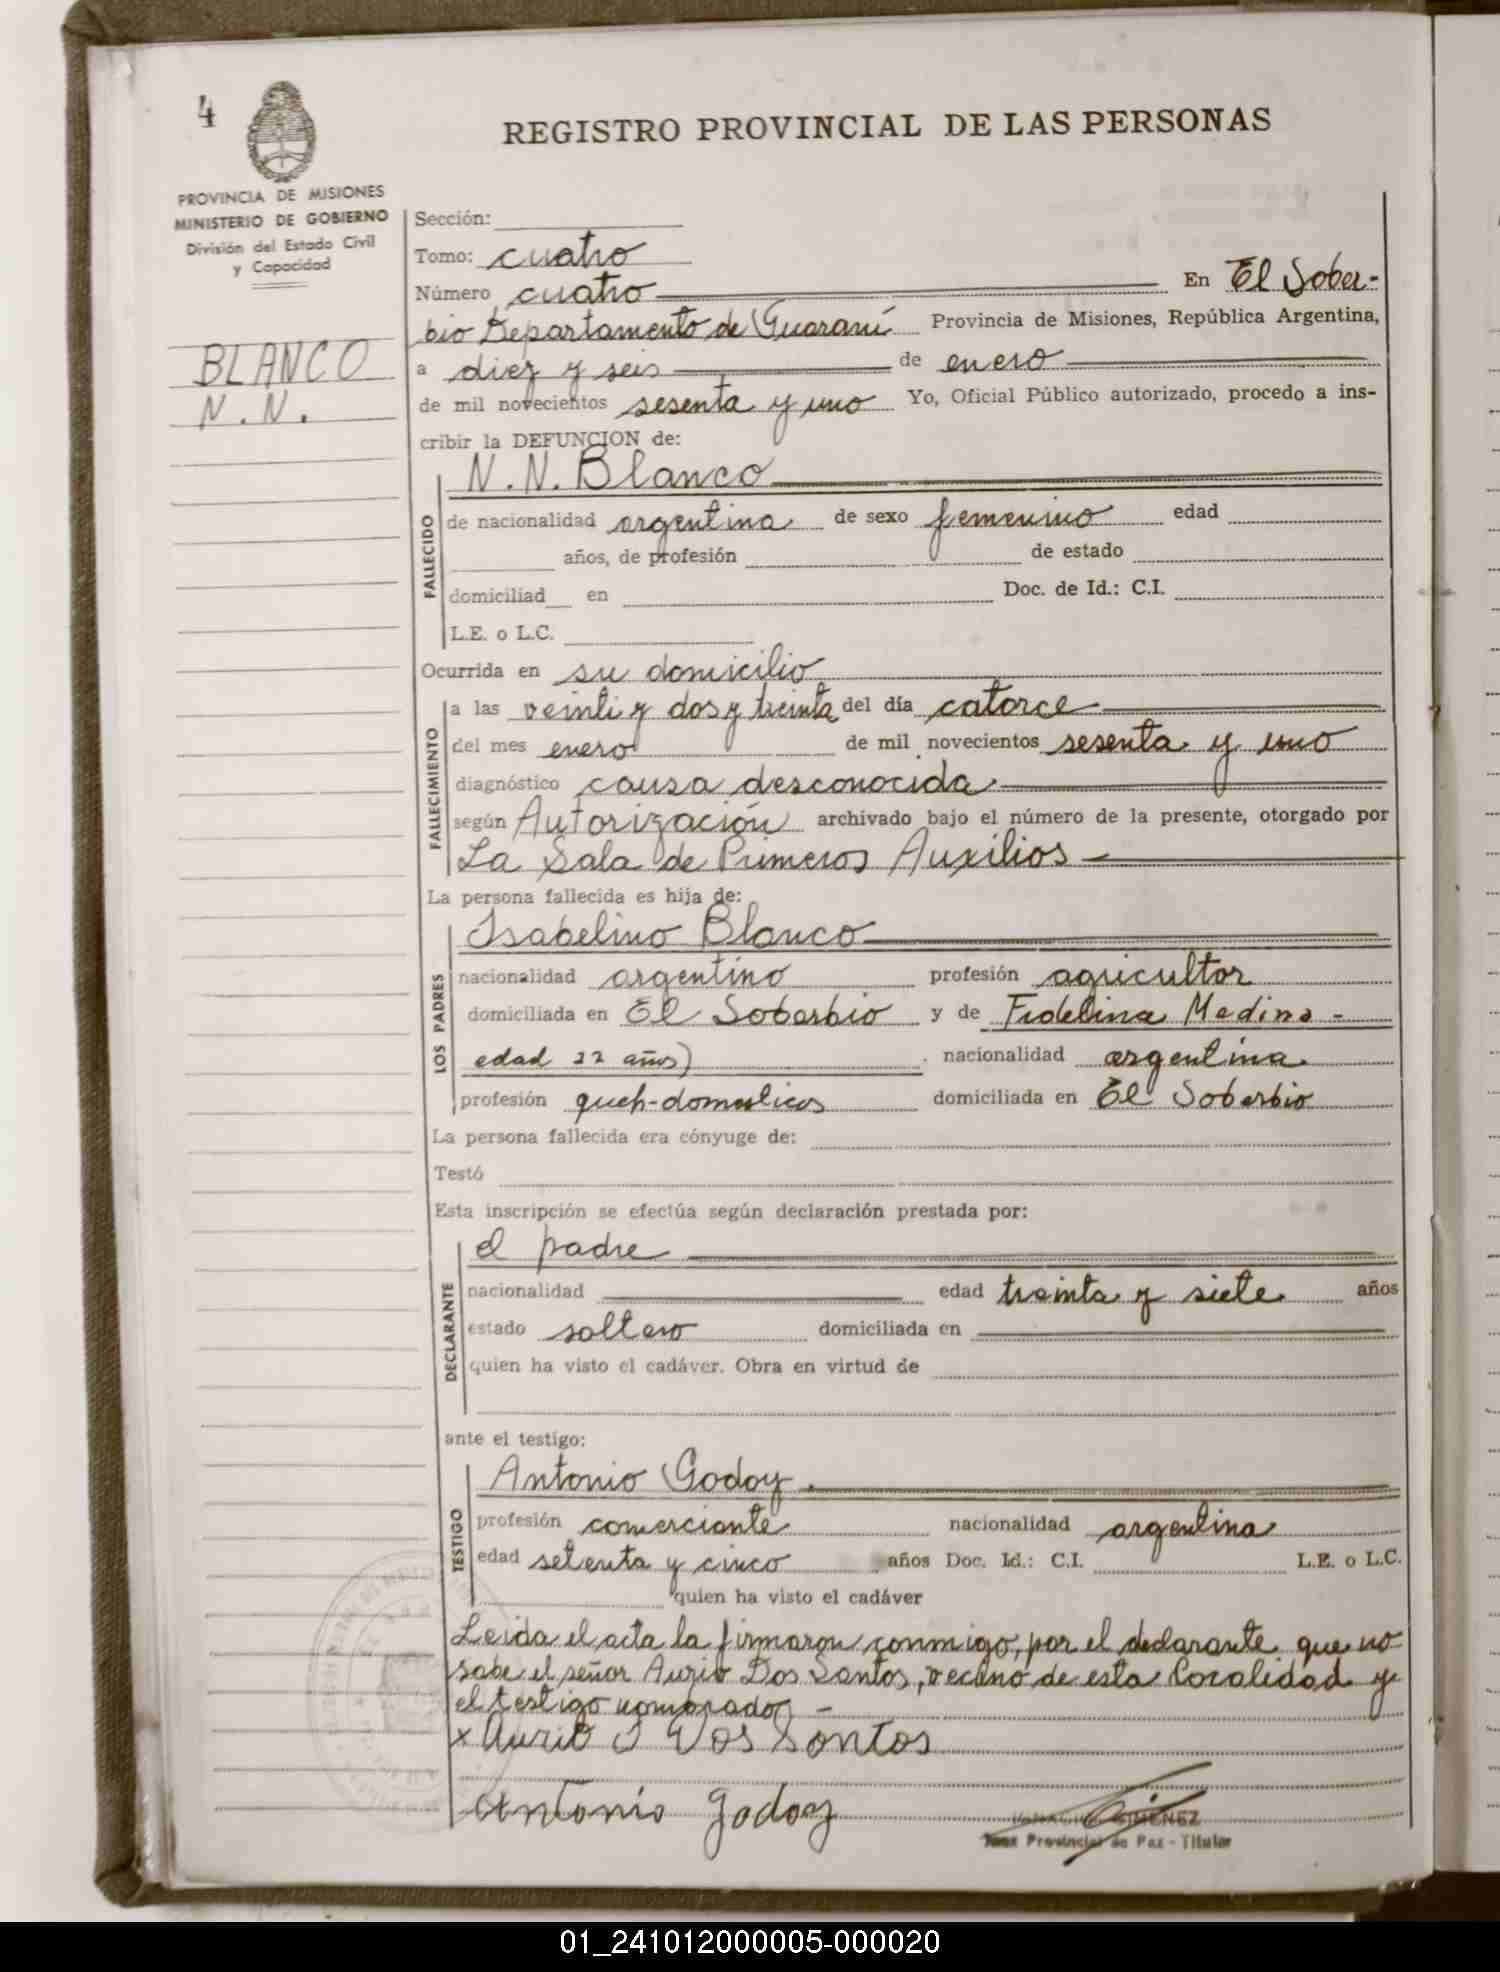 4
REGISTRO PROVINCIAL DE LAS PERSONAS
PROVINCIA DE MISIONES
MINISTERIO DE GOBIERNO
División del Estado Civil
y Capacidad
BLANCO
N.N.
Sección:
Tomo: cuatro
Número cuatro En El Sober-
bio Departamento de Guaraní Provincia de Misiones, República Argentina,
a diez y seis de enero
de mil novecientos sesenta y uno Yo, Oficial Público autorizado, procedo a ins-
cribir la DEFUNCION de:
FALLECIDO
N.N. Blanco
de nacionalidad argentina de sexo femenino edad
años, de profesión de estado
domiciliad en Doc. de Id.: C.I.
L.E. o L.C.
Ocurrida en su domicilio
FALLECIMIENTO
a las veinti y dos y treinta del día catorce
del mes enero de mil novecientos sesenta y uno
diagnóstico causa desconocida
según Autorización archivado bajo el número de la presente, otorgado por
La Sala de Primeros Auxilios
La persona fallecida es hija de:
LOS PADRES
Isabelino Blanco
nacionalidad argentino profesión agricultor
domiciliada en El Soberbio y de Fidelina Medina -
edad 22 años) nacionalidad argentina
profesión queh-domesticos domiciliada en El Soberbio
La persona fallecida era cónyuge de:
Testó
Esta inscripción se efectúa según declaración prestada por:
DECLARANTE
el padre
nacionalidad edad treinta y siete años
estado soltero domiciliada en
quien ha visto el cadáver. Obra en virtud de
ante el testigo:
TESTIGO
Antonio Godoy
profesión comerciante nacionalidad argentina
edad setenta y cinco años Doc. Id.: C.I. L.E. o L.C.
quien ha visto el cadáver
Leida el acta la firmaron conmigo, por el declarante que no
sabe el señor Aurio Dos Santos, vecino de esta localidad y
el testigo nombrado -
x Aurio J Dos Santos
Antonio Godoy
GIMENEZ
Juez Provincial de Paz - Titular
01_241012000005-000020